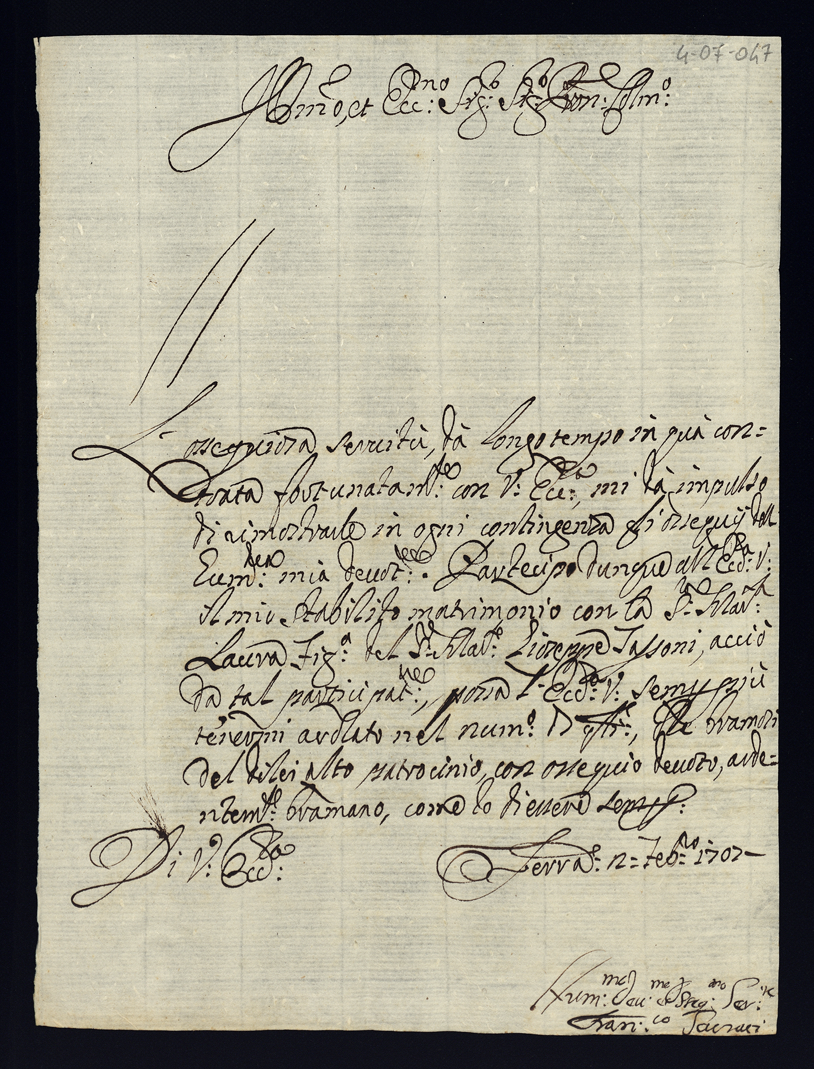 4-07-047
Illmo, et Ecc:mo Sig:o Sig:o Pron: Colmo:
L'ossequiosa servitù, dà longo tempo in quà con=
tratta fortunatam:te con V: Ecc:a, mi dà impulso
di rimostrarle in ogni contingenza gl'ossequij dell
mia devot:ne. Partecipo dunque all'Ecc:za V:
il mio stabilito matrimonio con la S:ra Mar:a
Laura Fig:a del S:r Mar:e Gioseppe Tassoni, acciò
da tal participat:ne, possa l'Ecc:za V: sempre più
tenermi arolato nel num:o che bramosi
del di lei alto patrocinio, con ossequio devoto, arde=
ntem:te bramano, come fo di essere semp:
Di V: Ecc:za
Ferra: Feb:ro 1702
Hum:mo Dev:mo et Obseq:mo Ser:re
Fran:co Sacrati